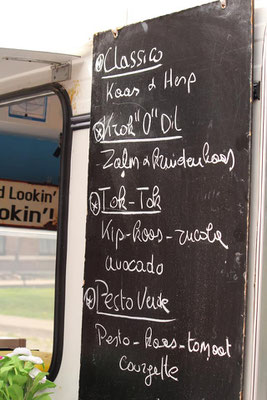 Classico
Kaas & Hesp
Krok "O" Dil
Zalm & kruidenkaas
Tok-Tok
Kip-kaas-rucola
avocado
Pesto Verde
Pesto-kaas-tomaat
Courgette
d Lookin'
okin'!